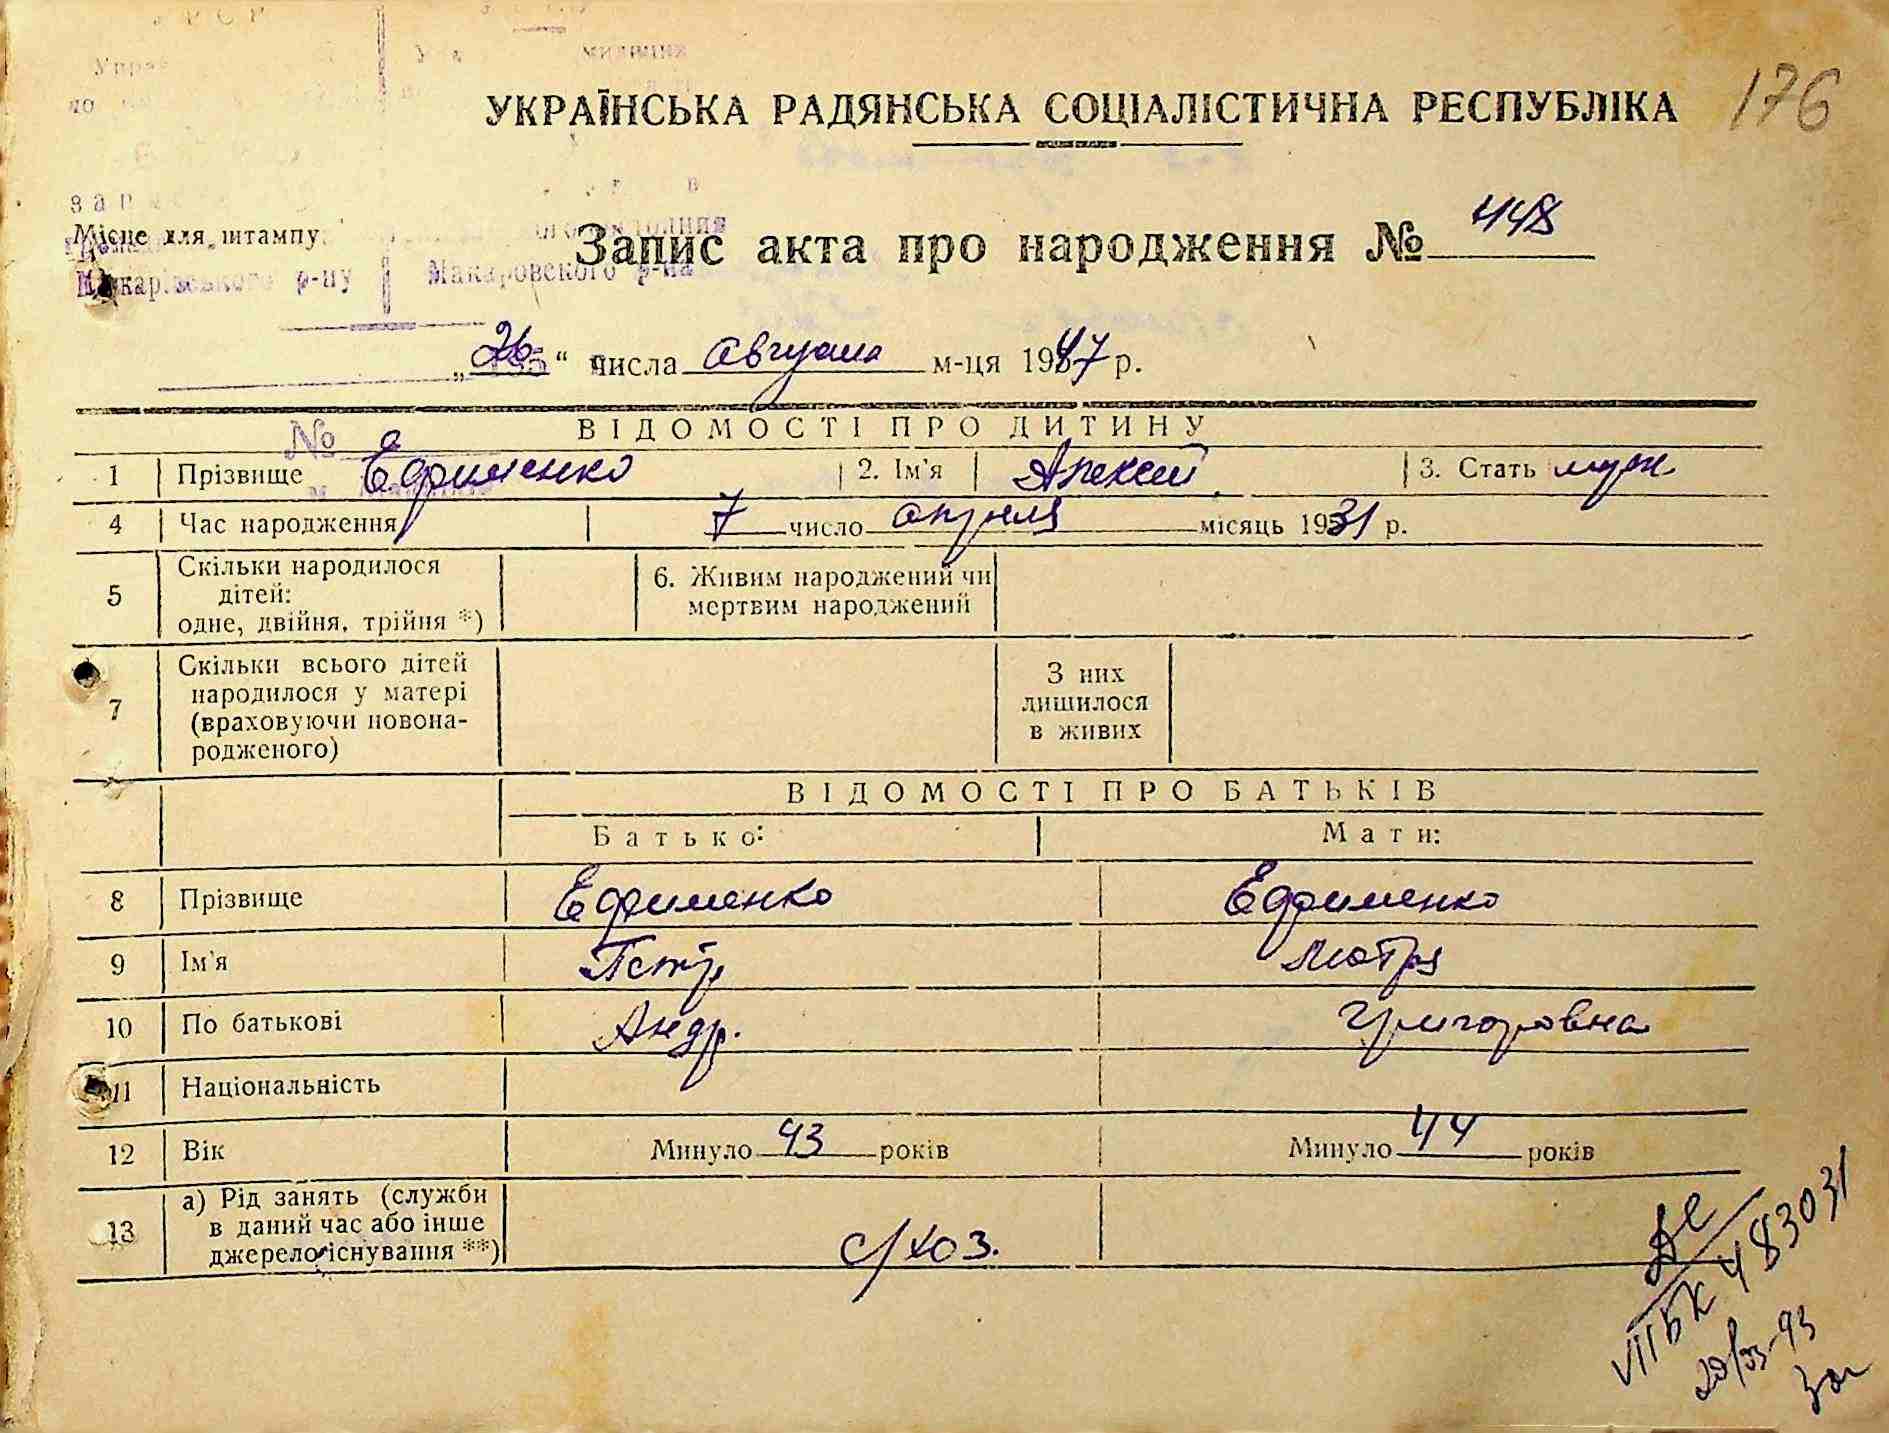 176
УКРАЇНСЬКА РАДЯНСЬКА СОЦІАЛІСТИЧНА РЕСПУБЛІКА
Місце для штампу
Запис акта про народження № 448
Макарівського р-ну Макаровского р-на
„26“ числа августа м-ця 1947 р.
ВІДОМОСТІ ПРО ДИТИНУ
№
1 Прізвище Ефименко 2. Ім'я Алексей 3. Стать муж
4 Час народження 7 число апреля місяць 1931 р.
5 Скільки народилося дітей: одне, двійня, трійня *) 6. Живим народжений чи мертвим народжений
7 Скільки всього дітей народилося у матері (враховуючи новона-родженого) З них лишилося в живих
ВІДОМОСТІ ПРО БАТЬКІВ
Батько: Мати:
8 Прізвище Ефименко Ефименко
9 Ім'я Петр Мотря
10 По батькові Андр. Григоровна
11 Національність
12 Вік Минуло 43 років Минуло 44 років
13 а) Рід занять (служби в даний час або інше джерело існування **) с/хоз.
VII БК 483031